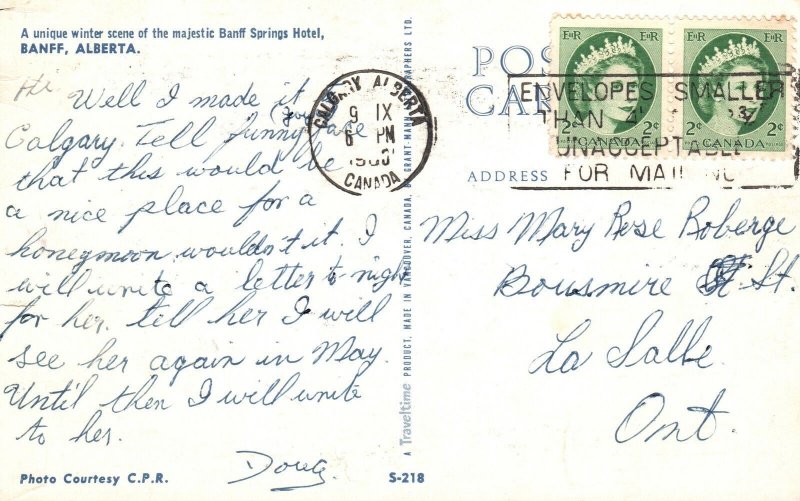 A unique winter scene of the majestic Banff Springs Hotel,
BANFF, ALBERTA.
Hi
Well I made it
Calgary. Tell funny face
(you)
that this would be
a nice place for a
honeymoon wouldn't it. I
will write a letter to night
for her. tell her I will
see her again in May.
Until then I will write
to her.
Doug
Photo Courtesy C.P.R.
S-218
A Traveltime PRODUCT, MADE IN VANCOUVER, CANADA, BY GRANT-MANN LITHOGRAPHERS LTD.
CALGARY ALBERTA
9 IX
6 PM
CANADA
POS
CAR
ENVELOPES SMALLER
THAN 4"
UNACCEPTABLE
FOR MAILING
EIIR EIIR
2¢ CANADA
EIIR EIIR
2¢ CANADA 2¢
ADDRESS
Miss Mary Rose Roberge
Bousmire St.
La Salle
Ont.